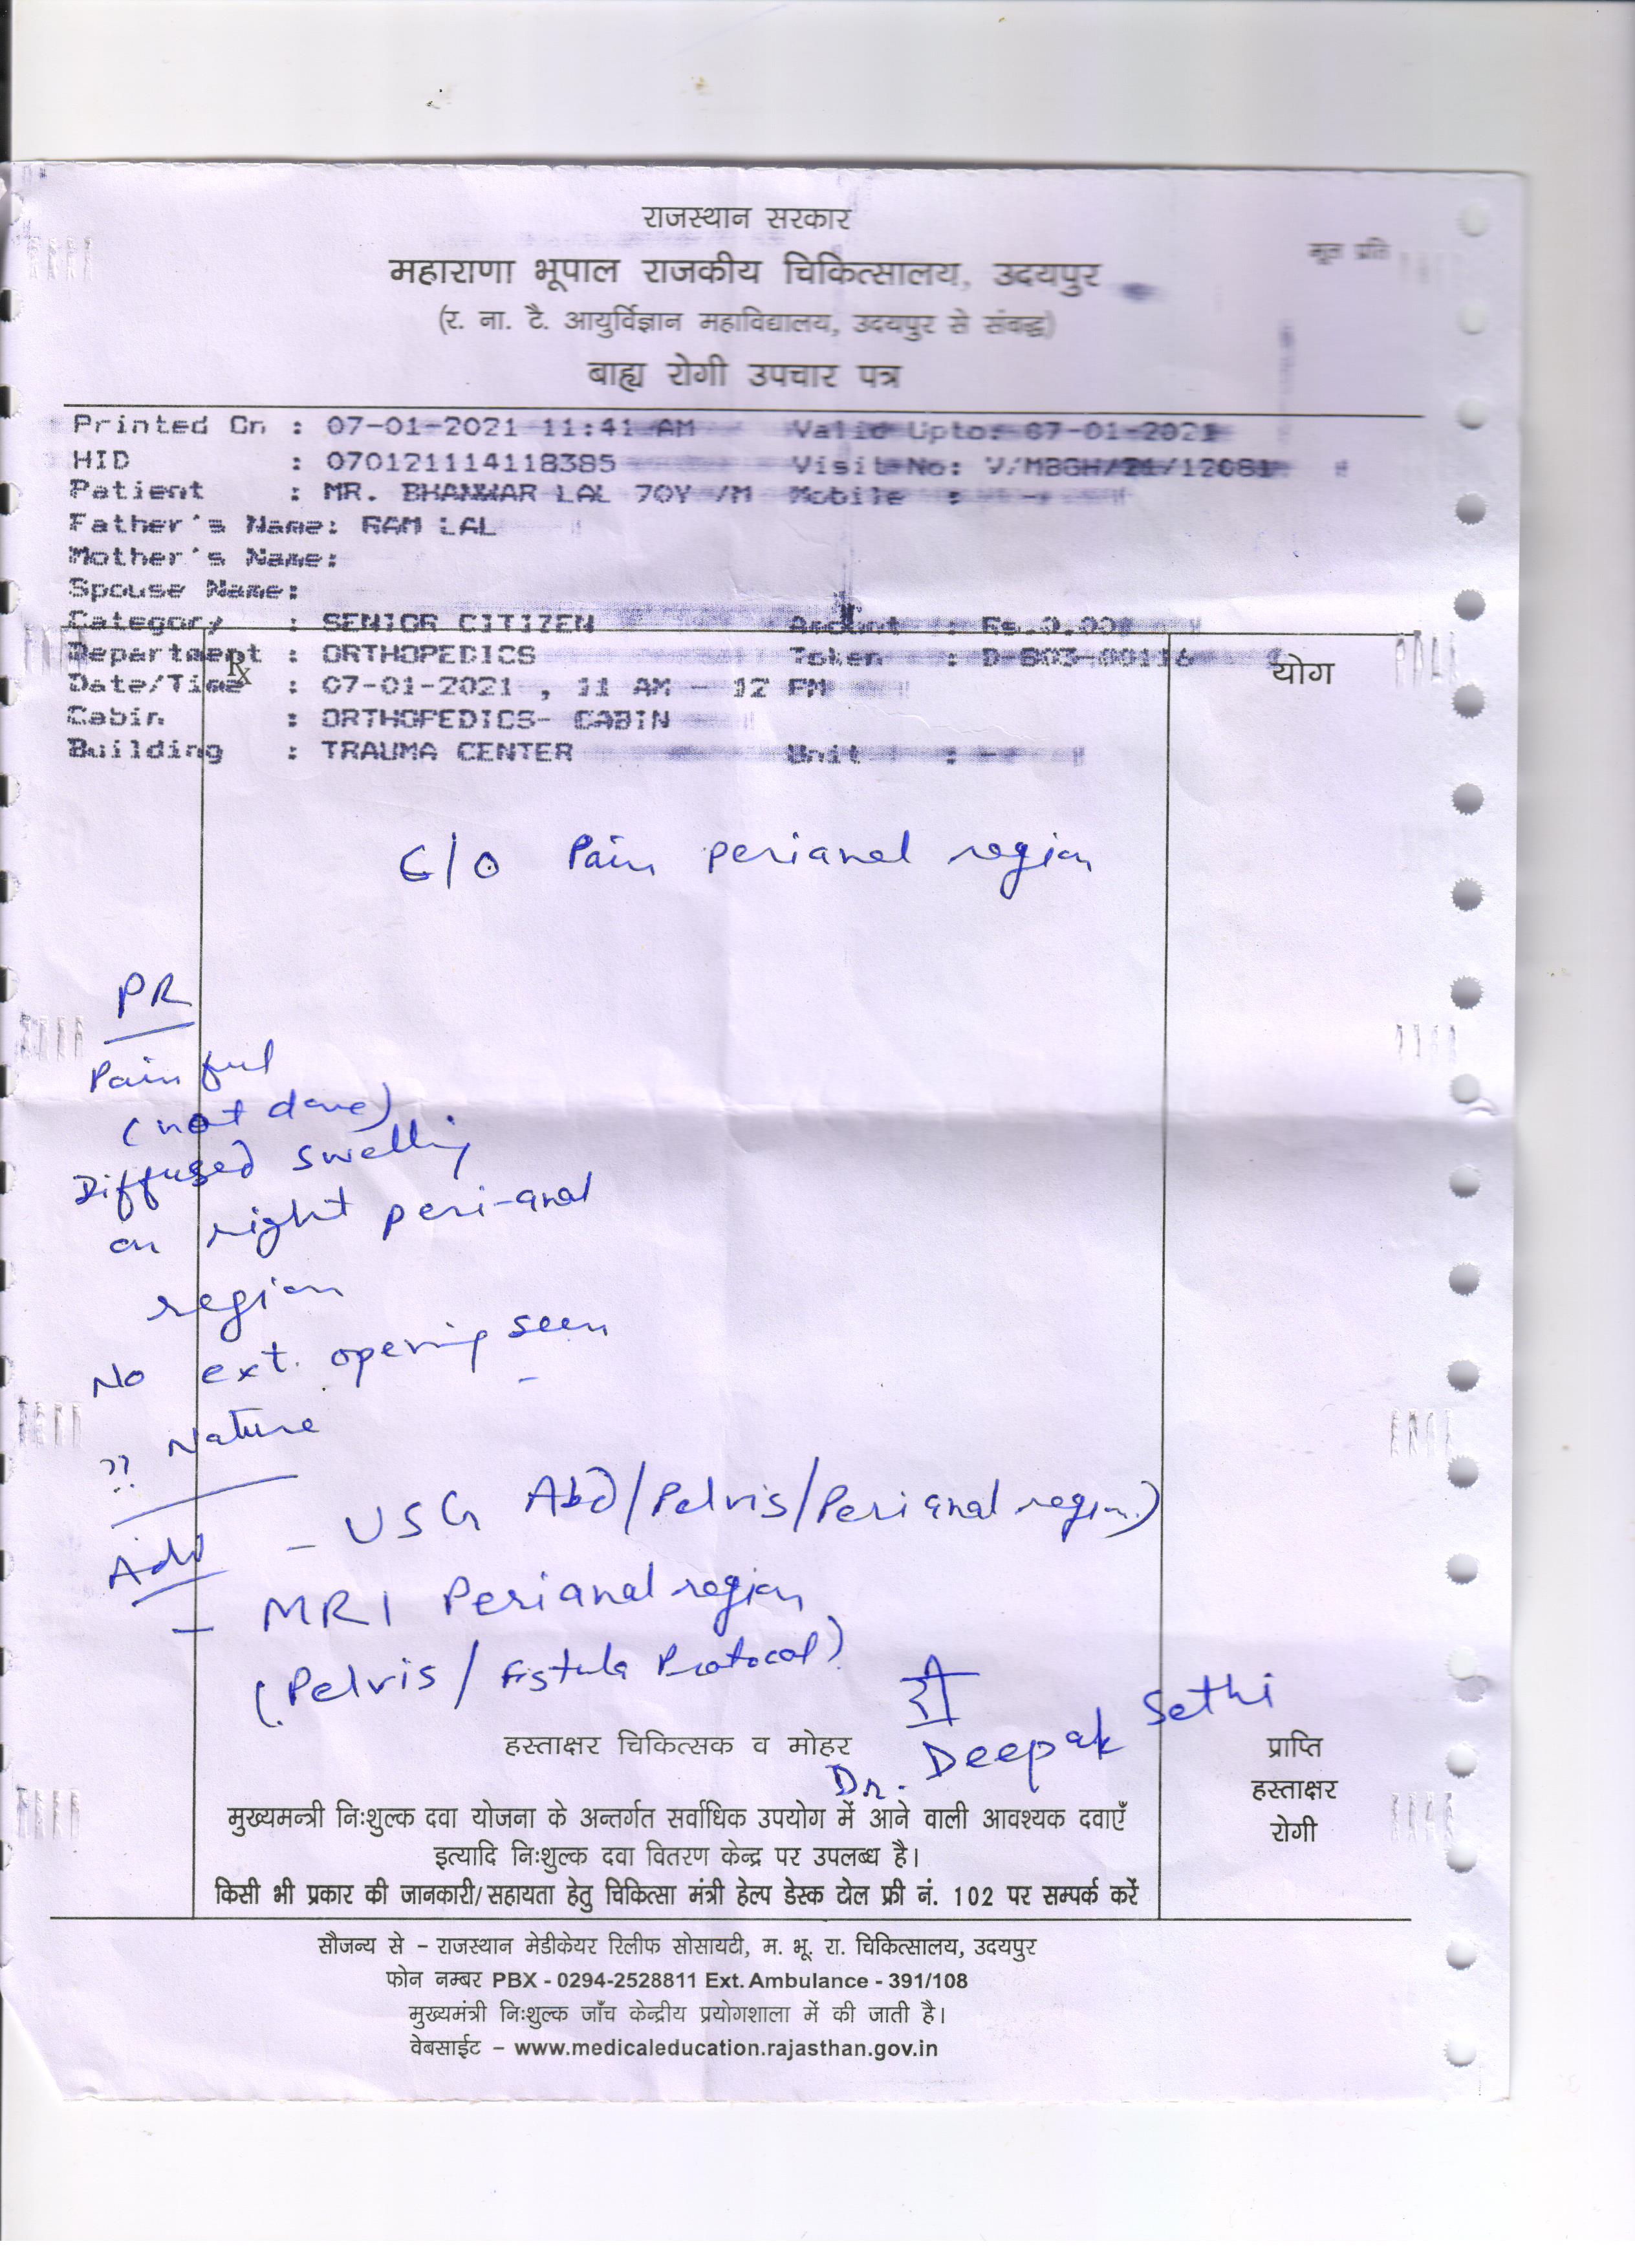 राजस्थान सरकार
मूल प्रति
महाराणा भूपाल राजकीय चिकित्सालय, उदयपुर
(र. ना. टै. आयुर्विज्ञान महाविद्यालय, उदयपुर से संबद्ध)
बाह्य रोगी उपचार पत्र
Printed On : 07-01-2021 11:41 AM Valid Upto: 07-01-2021
HID : 070121114118385 Visit No: V/MBGH/21/12081
Patient : MR. BHANWAR LAL 70Y /M Mobile : -
Father's Name: RAM LAL
Mother's Name:
Spouse Name:
Category : SENIOR CITIZEN Amount : Rs.0.00
Department : ORTHOPEDICS Token : D-603-00116
Rx
योग
Date/Time : 07-01-2021 , 11 AM - 12 PM
Cabin : ORTHOPEDICS- CABIN
Building : TRAUMA CENTER Unit : -
C/O Pain perianal region
PR
Painful
(not done)
Diffused swelling
on right peri-anal
region
No ext. opening seen
?? Nature
Adv - USG Abd/Pelvis/Perianal region)
- MRI Perianal region
(Pelvis / Fistula Protocol)
Dr. Deepak Sethi
हस्ताक्षर चिकित्सक व मोहर
प्राप्ति
हस्ताक्षर
रोगी
मुख्यमन्त्री निःशुल्क दवा योजना के अन्तर्गत सर्वाधिक उपयोग में आने वाली आवश्यक दवाएँ
इत्यादि निःशुल्क दवा वितरण केन्द्र पर उपलब्ध है।
किसी भी प्रकार की जानकारी/सहायता हेतु चिकित्सा मंत्री हेल्प डेस्क टोल फ्री नं. 102 पर सम्पर्क करें
सौजन्य से – राजस्थान मेडीकेयर रिलीफ सोसायटी, म. भू. रा. चिकित्सालय, उदयपुर
फोन नम्बर PBX - 0294-2528811 Ext. Ambulance - 391/108
मुख्यमंत्री निःशुल्क जाँच केन्द्रीय प्रयोगशाला में की जाती है।
वेबसाईट – www.medicaleducation.rajasthan.gov.in